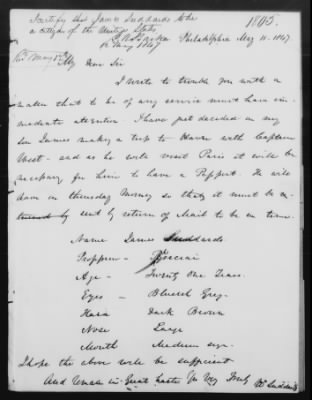 I certify this James Suddards to be
a citizen of the United States
12 May 1847
1805.
Philadelphia May 11. 1847
My Dear Sir
I write to trouble you with a
matter that to be of any service must have im-
mediate attention. I have just decided on my
son James making a trip to Havre with Captain
West - and as he will visit Paris it will be
necessary for him to have a Passport. He will
on thursday Morning so that it must be
sent by return of Mail to be in time.
Name James Suddards
Age - Twenty One Years.
Eyes - Blueish Grey.
Hair Dark Brown
Nose Large
Mouth Medium size.
I hope the above will be sufficient
And Remain in Great haste Yr Very Truly Wm Suddards